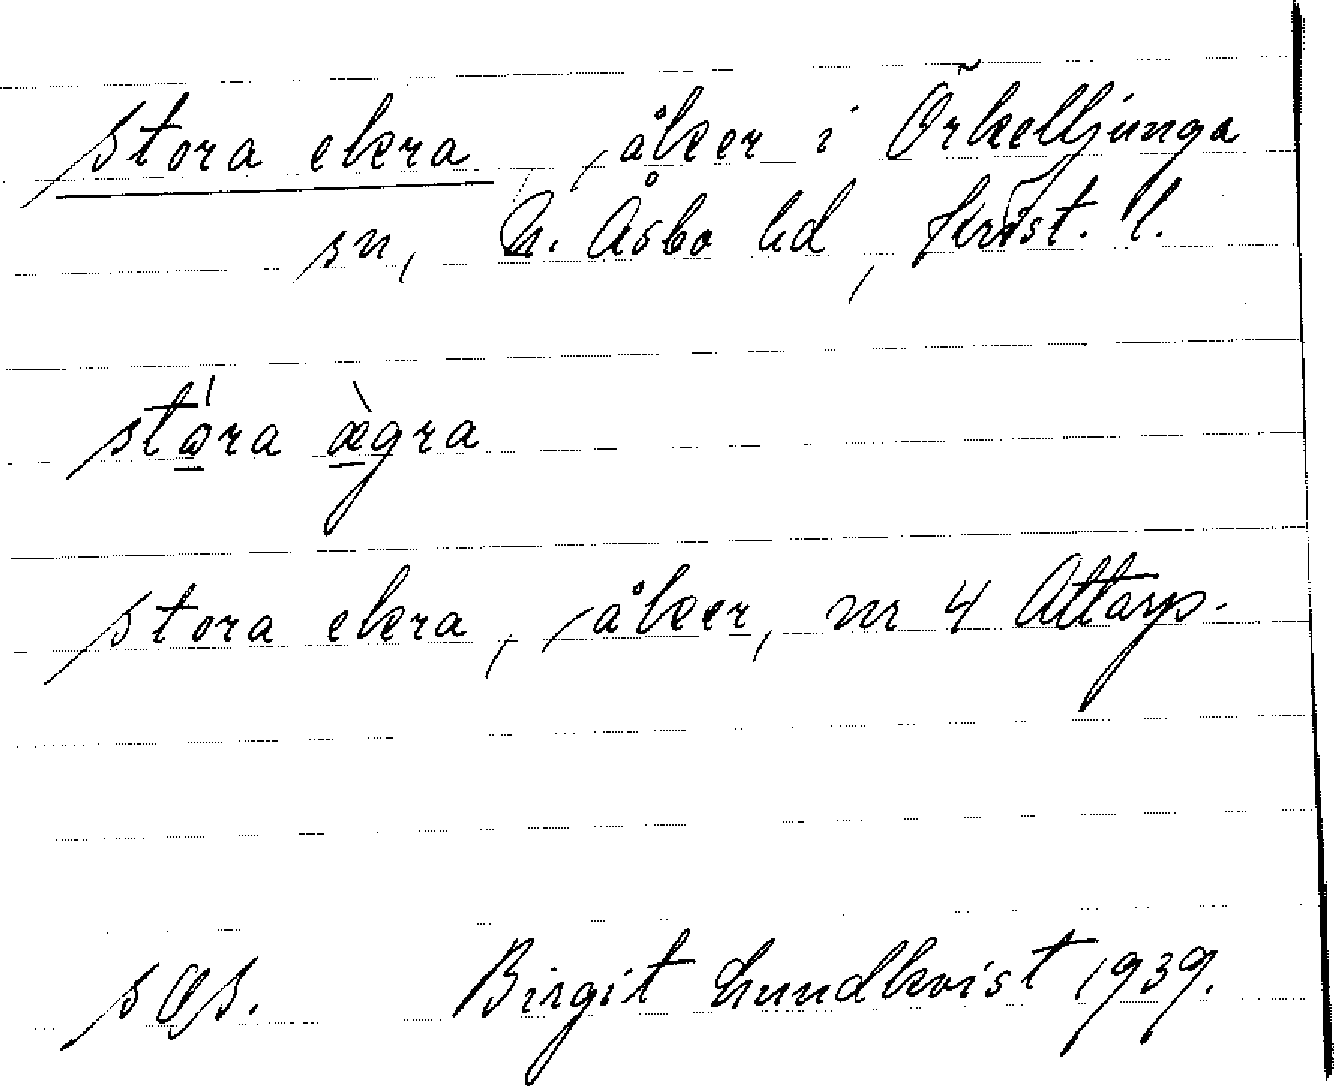 stora ekra, åker i Örkelljunga
sn, N. Åsbo hd, Krist. l.
stǻra æ̀gra
stora ekra, åker, nr 4 Attarp.
Birgit Lundkvist 1939.